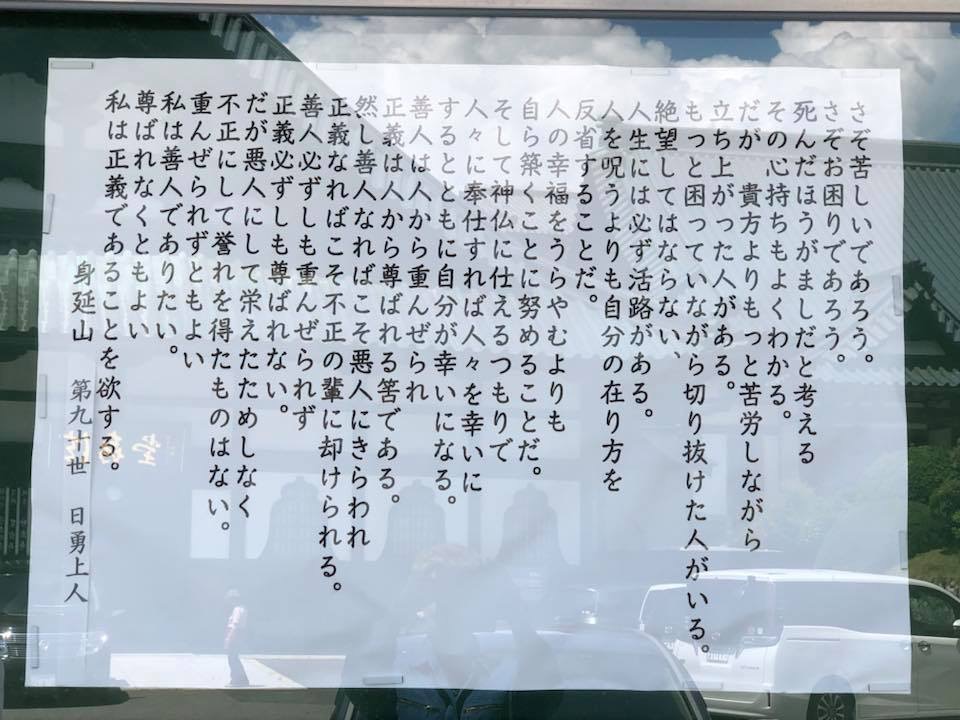 さぞ苦しいであろう。
さぞお困りであろう。
死んだほうがましだと考える
その心持ちもよくわかる。
だが、貴方よりもっと苦労しながら
立ち上がった人がある。
もっと困っていながら切り抜けた人がいる。
絶望してはならない、
人生には必ず活路がある。
人を呪うよりも自分の在り方を
反省することだ。
人の幸福をうらやむよりも
自ら築くことに努めることだ。
そして神仏に仕えるつもりで
人々に奉仕すれば人々を幸いに
するとともに自分が幸いになる。
善人は人から重んぜられ
正義は人から尊ばれる筈である。
然し善人なればこそ悪人にきらわれ
正義なればこそ不正の輩に却けられる。
善人必ずしも重んぜられず
正義必ずしも尊ばれない。
だが悪人にして栄えたためしなく
不正にして誉れを得たものはない。
重んぜられずともよい
私は善人でありたい。
尊ばれなくともよい
私は正義であることを欲する。
身延山 第九十世 日勇上人